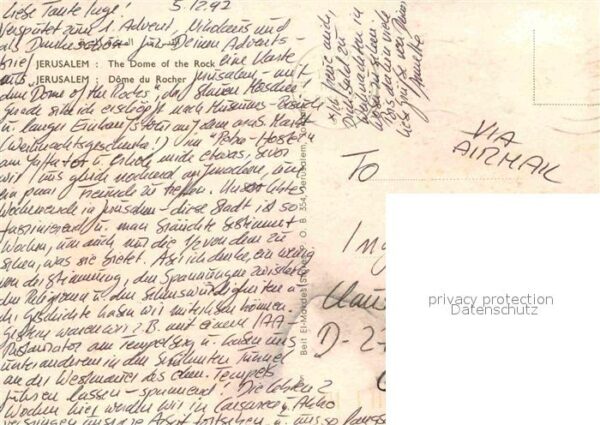 Liebe Tante Inge! 5.12.92
Verspätet zum 1. Advent, Nikolaus und
als Dankeschön für Deinen Advents-
brief eine Karte
JERUSALEM : The Dome of the Rock
JERUSALEM : Dôme du Rocher
aus Jerusalem - mit
dem "Dome of the Rocks", der schönen Moschee!
gerade sitze ich erschöpft nach Museums-Besuch
u. langer Einkaufstour auf dem arab. Markt
(Weihnachtsgeschenke!) im "Petra-Hostel"
am Jaffator u. erhole mich etwas, bevor
wir uns gleich nochmal aufmachen, um
ein paar Freunde zu treffen. Unser letztes
Wochenende in Jerusalem - diese Stadt ist so
faszinierend u. man bräuchte bestimmt
Wochen, um auch nur die % von dem zu
sehen, was sie bietet. Aber ich denke, ein wenig
von der Stimmung, den Spannungen zwischen
den Religionen u. den Sehenswürdigkeiten u.
der Geschichte haben wir mitkriegen können.
Gestern waren wir z.B. mit einem IAA
Restaurator am Tempelberg u. haben uns
unter anderem in den berühmten Tunnel
an der Westmauer des ehem. Tempels
führen lassen - spannend! Die letzten 2
Wochen hier werden wir in Caesarea u. Akko
unsere Arbeit fortsetzen u. uns so
*Ich freue mich,
Dich bald zu
Weihnachten in
zu sehen!
Bis dahin viele
liebe Grüße von Deiner
Beit El-Mardes P. O. B. 354, Jerusalem,
VIA
AIRMAIL
TO
In
Klaus
D-27
privacy protection
Datenschutz